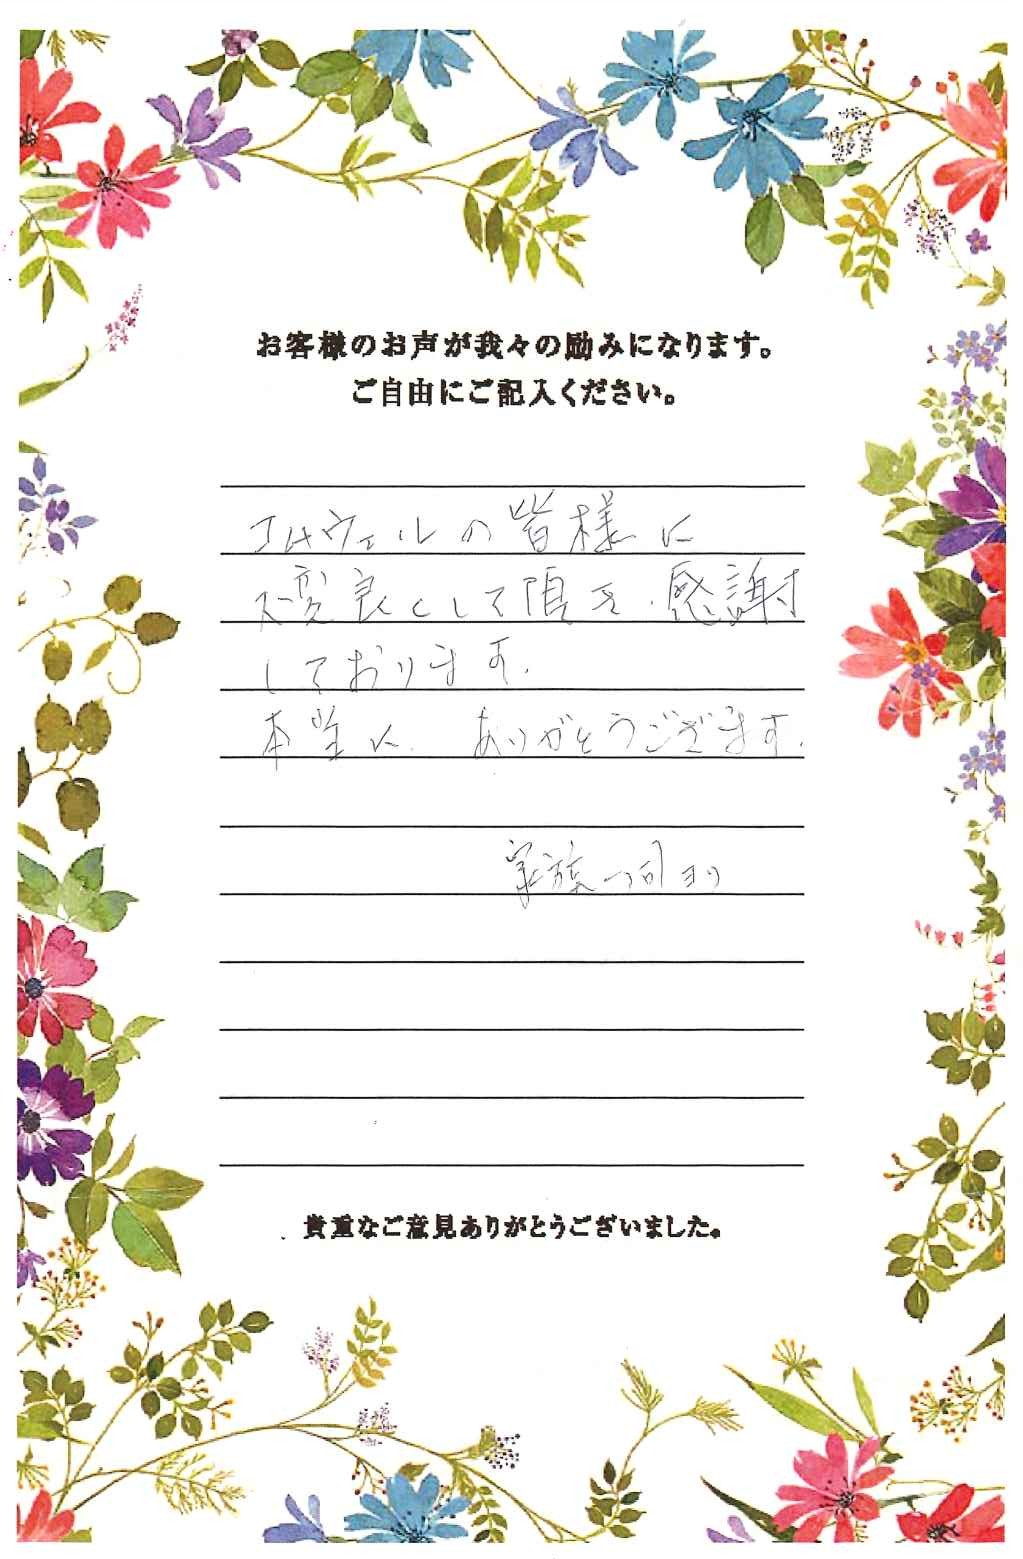 お客様のお声が我々の励みになります。
ご自由にご記入ください。
コムウェルの皆様に
大変良くして頂き、感謝
しております。
本当に、ありがとうございます。
家族一同ヨリ
貴重なご意見ありがとうございました。